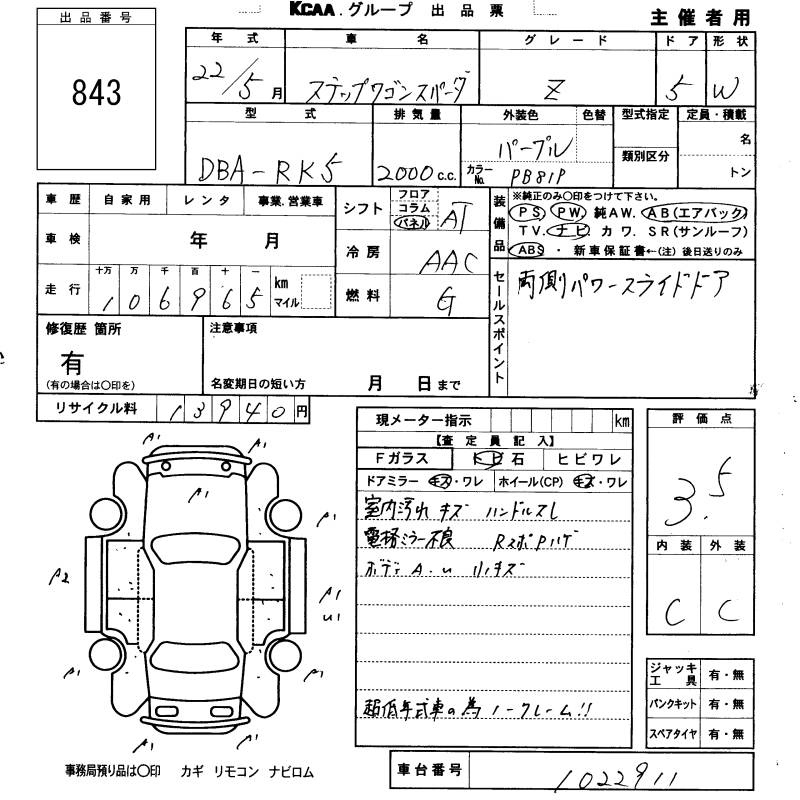 KCAA.グループ 出品票
主催者用
出品番号
843
年式 車名 グレード ドア 形状
22/5月 ステップワゴンスパーダ Z 5 W
型式 排気量 外装色 色替 型式指定 定員・積載
DBA-RK5 2000c.c. パープル 類別区分 名
カラーNo. PB81P トン
車歴 自家用 レンタ 事業.営業車
車検 年 月
走行 十万 万 千 百 十 一
106965 km マイル
シフト フロア コラム パネル AT
冷房 AAC
燃料 G
装備品
※純正のみ○印をつけて下さい。
PS PW 純AW. AB(エアバック)
TV. ナビ カワ. SR(サンルーフ)
ABS ・ 新車保証書←(注)後日送りのみ
セールスポイント
両側パワースライドドア
修復歴 箇所
有
(有の場合は○印を)
注意事項
名変期日の短い方 月 日まで
リサイクル料 13940円
現メーター指示 km
【査定員記入】
Fガラス トビ石 ヒビワレ
ドアミラー キズ・ワレ ホイール(CP) キズ・ワレ
室内汚れ キズ ハンドルスレ
電格ミラー不良 RスポPハゲ
ボディ A.u 小キズ
超低年式車の為 ノークレーム!!
評価点
3.5
内装 外装
C C
ジャッキ工具 有・無
パンクキット 有・無
スペアタイヤ 有・無
A1 A1
A1
A1 A1
A2 A1
U1
A1 A1
A1 A1
事務局預り品は○印 カギ リモコン ナビロム
車台番号 1022911